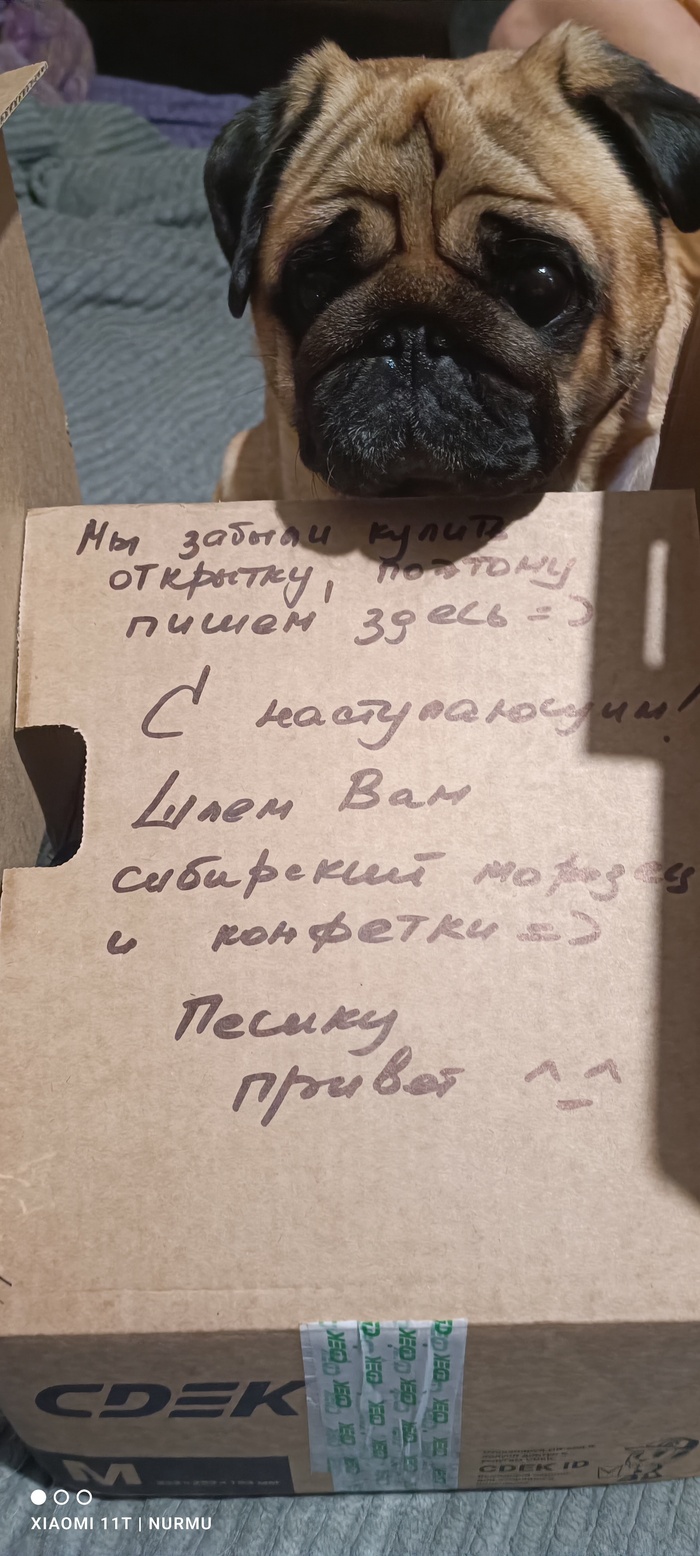 Мы забыли купить
открытку, поэтому
пишем здесь =)
С наступающим!
Шлем Вам
сибирский морозец
и конфетки =)
Песику
привет ^_^
CDEK
CDEK CDEK CDEK CDEK
M
CDEK ID
XIAOMI 11T | NURMU